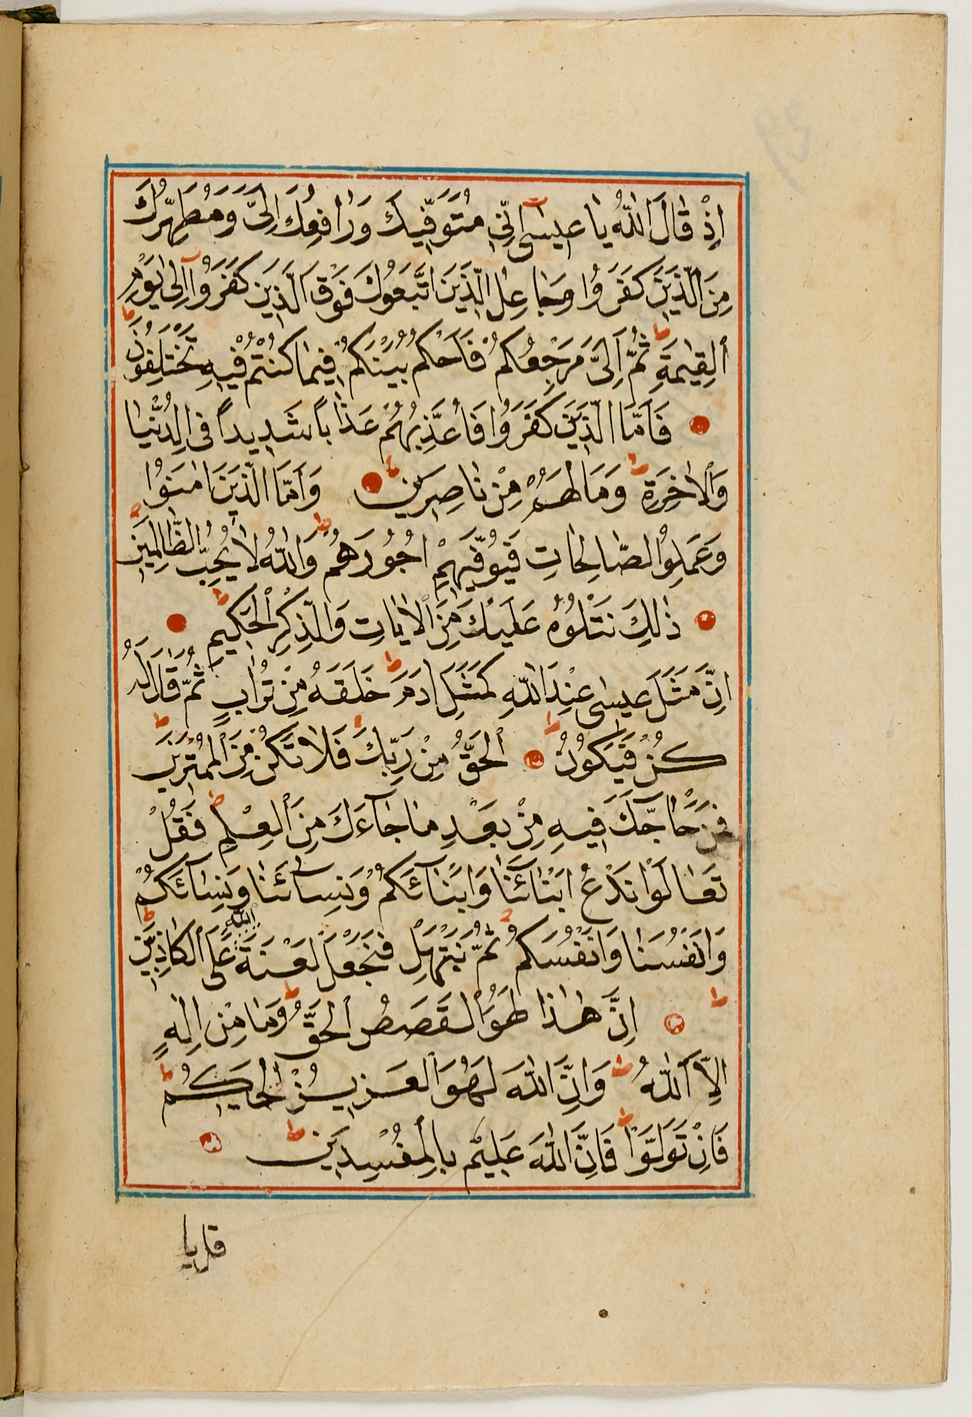 اِذْ قَالَ اللّٰهُ يَا عِيسٰى اِنّٖى مُتَوَفّٖيكَ وَرَافِعُكَ اِلَىَّ وَمُطَهِّرُكَ
مِنَ الَّذٖينَ كَفَرُوا وَجَاعِلُ الَّذٖينَ اتَّبَعُوكَ فَوْقَ الَّذٖينَ كَفَرُوا اِلٰى يَوْمِ
الْقِيٰمَةِ ثُمَّ اِلَىَّ مَرْجِعُكُمْ فَاَحْكُمُ بَيْنَكُمْ فٖيمَا كُنْتُمْ فٖيهِ تَخْتَلِفُونَ
فَاَمَّا الَّذٖينَ كَفَرُوا فَاُعَذِّبُهُمْ عَذَابًا شَدٖيدًا فِى الدُّنْيَا
وَالْاٰخِرَةِ وَمَا لَهُمْ مِنْ نَاصِرٖينَ وَاَمَّا الَّذٖينَ اٰمَنُوا
وَعَمِلُوا الصَّالِحَاتِ فَيُوَفّٖيهِمْ اُجُورَهُمْ وَاللّٰهُ لَا يُحِبُّ الظَّالِمٖينَ
ذٰلِكَ نَتْلُوهُ عَلَيْكَ مِنَ الْاٰيَاتِ وَالذِّكْرِ الْحَكٖيمِ
اِنَّ مَثَلَ عِيسٰى عِنْدَ اللّٰهِ كَمَثَلِ اٰدَمَ خَلَقَهُ مِنْ تُرَابٍ ثُمَّ قَالَ لَهُ
كُنْ فَيَكُونُ الْحَقُّ مِنْ رَبِّكَ فَلَا تَكُنْ مِنَ الْمُمْتَرٖينَ
فَمَنْ حَاجَّكَ فٖيهِ مِنْ بَعْدِ مَا جَاءَكَ مِنَ الْعِلْمِ فَقُلْ
تَعَالَوْا نَدْعُ اَبْنَائَنَا وَاَبْنَائَكُمْ وَنِسَائَنَا وَنِسَائَكُمْ
وَاَنْفُسَنَا وَاَنْفُسَكُمْ ثُمَّ نَبْتَهِلْ فَنَجْعَلْ لَعْنَةَ اللّٰهِ عَلَى الْكَاذِبٖينَ
اِنَّ هٰذَا لَهُوَ الْقَصَصُ الْحَقُّ وَمَا مِنْ اِلٰهٍ
اِلَّا اللّٰهُ وَاِنَّ اللّٰهَ لَهُوَ الْعَزٖيزُ الْحَكٖيمُ
فَاِنْ تَوَلَّوْا فَاِنَّ اللّٰهَ عَلٖيمٌ بِالْمُفْسِدٖينَ
قل يا